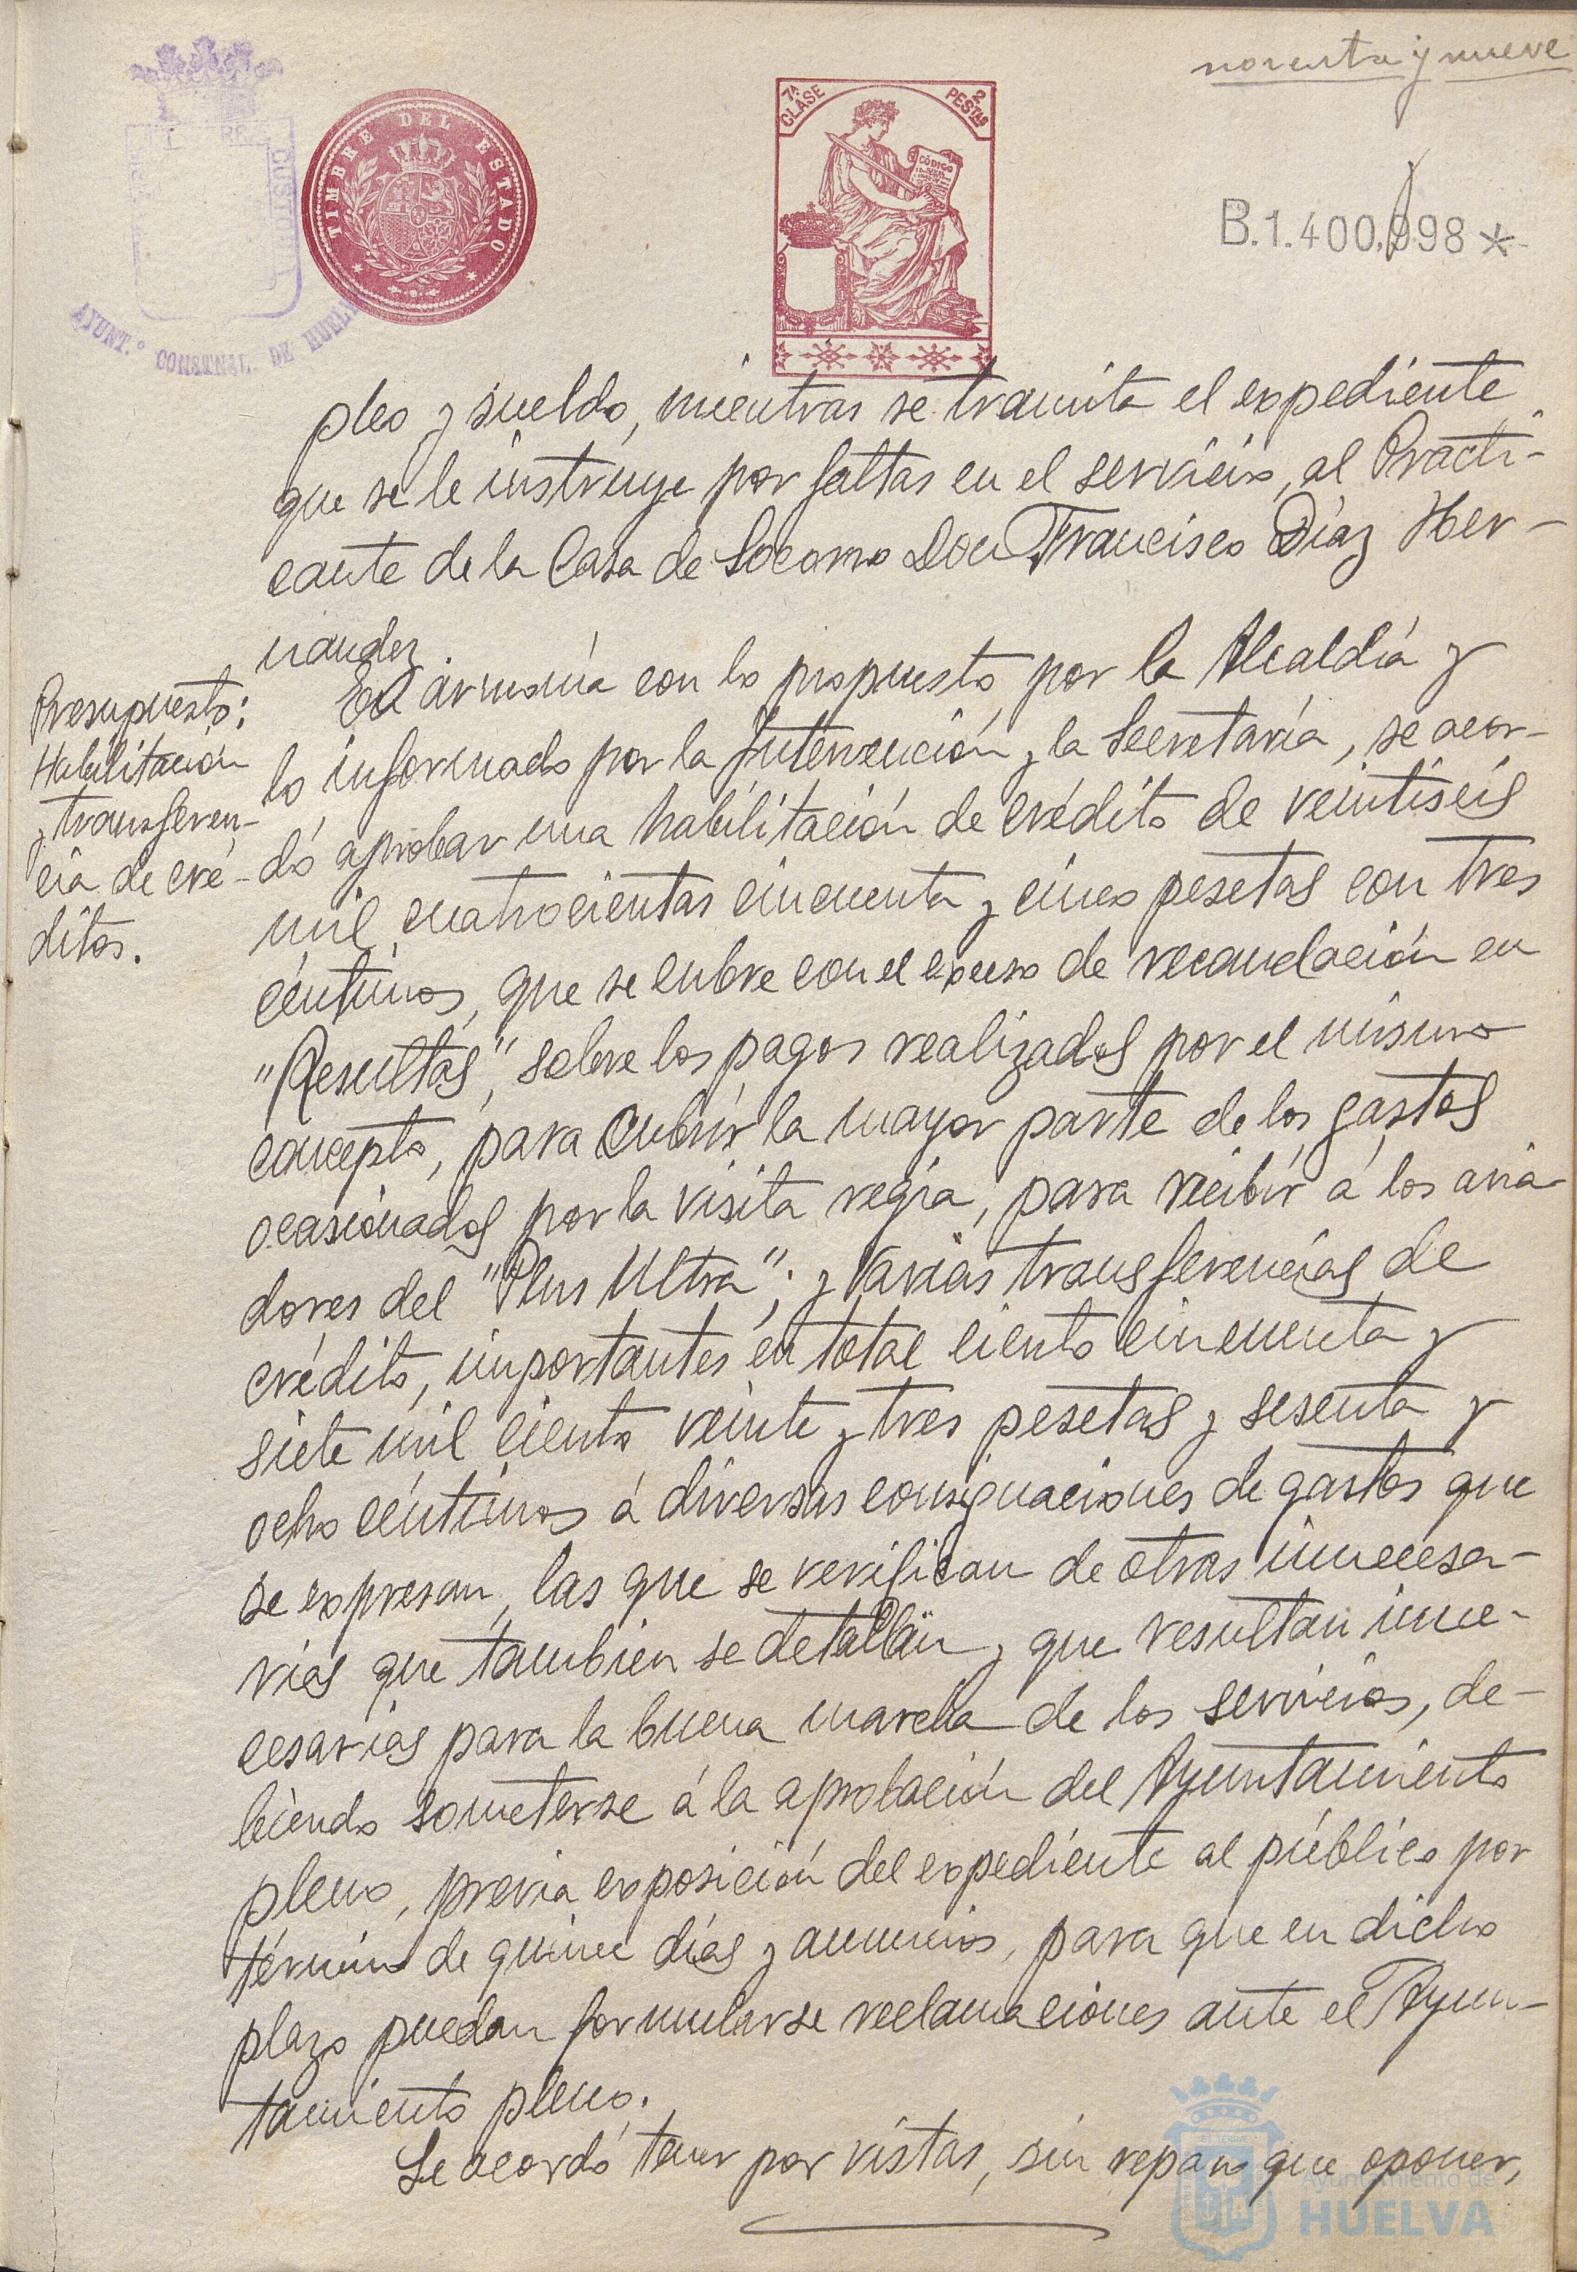 noventa y nueve
TIMBRE DEL ESTADO
7ª CLASE
2 PESTAS
CÓDIGO
B.1.400.998 *
AYUNT.º CONSTNAL. DE HUELVA
pleo y sueldo, mientras se tramita el expediente
que se le instruye por faltas en el servicio, al Practi-
cante de la Casa de Socorro Don Francisco Díaz Her-
nandez.
Presupuesto:
Habilitación
y transferen-
cia de cré-
ditos.
En armonía con lo propuesto por la Alcaldía y
lo informado por la Intervención y la Secretaría, se acor-
dó aprobar una habilitación de crédito de veintiseis
mil cuatrocientas cincuenta y cinco pesetas con tres
céntimos, que se cubre con el exceso de recaudación en
"Resultas", sobre los pagos realizados por el mismo
concepto, para cubrir la mayor parte de los gastos
ocasionados por la visita regia, para recibir á los avia-
dores del "Plus Ultra"; y varias transferencias de
crédito, importantes en total ciento cincuenta y
siete mil ciento veinte y tres pesetas y sesenta y
ocho céntimos á diversas consignaciones de gastos que
se expresan, las que se verifican de otras innecesa-
rias que tambien se detallan y que resultan inne-
cesarias para la buena marcha de los servicios, de-
biendo someterse á la aprobación del Ayuntamiento
pleno, previa exposición del expediente al público por
término de quince días y anuncios, para que en dicho
plazo puedan formularse reclamaciones ante el Ayun-
tamiento pleno.
Se acordó tener por vistas, sin reparo que oponer,
Ayuntamiento de
HUELVA